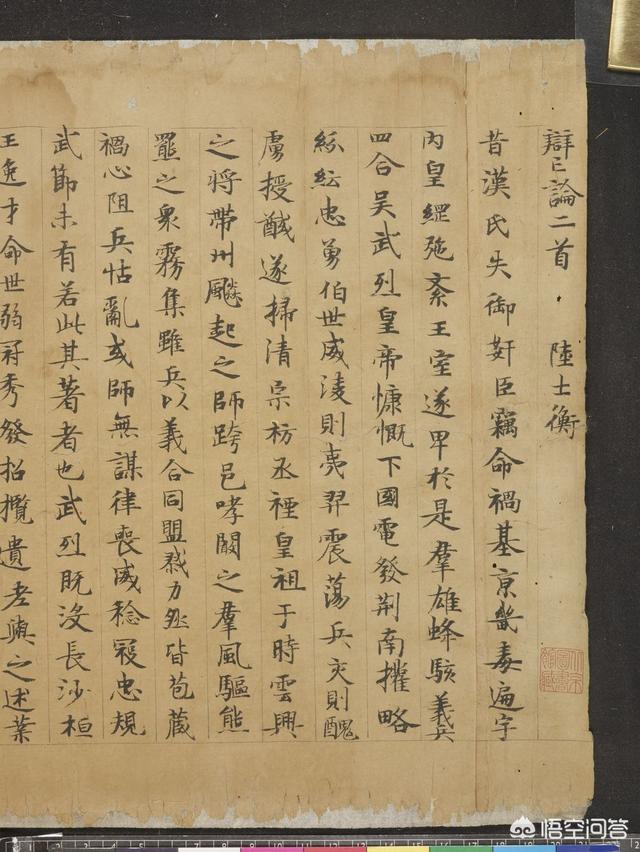 辯亡論二首 陸士衡
昔漢氏失御奸臣竊命禍基京畿毒遍宇
內皇綱弛紊王室遂卑於是羣雄蜂駭義兵
四合吳武烈皇帝慷慨下國電發荊南攉略
紛紜忠勇伯世威淩則夷羿震蕩兵交則醜
虜授馘遂掃清宗枋丞禋皇祖于時雲興
之將帶州飈起之師跨邑哮闞之羣風驅熊
羆之衆霧集雖兵以義合同盟勠力然皆苞藏
禍心阻兵怙亂或師無謀律喪威稔寇忠規
武節未有若此其著者也武烈既沒長沙桓
王逸才命世弱冠秀發招攬遺老與之述業
悟空问答